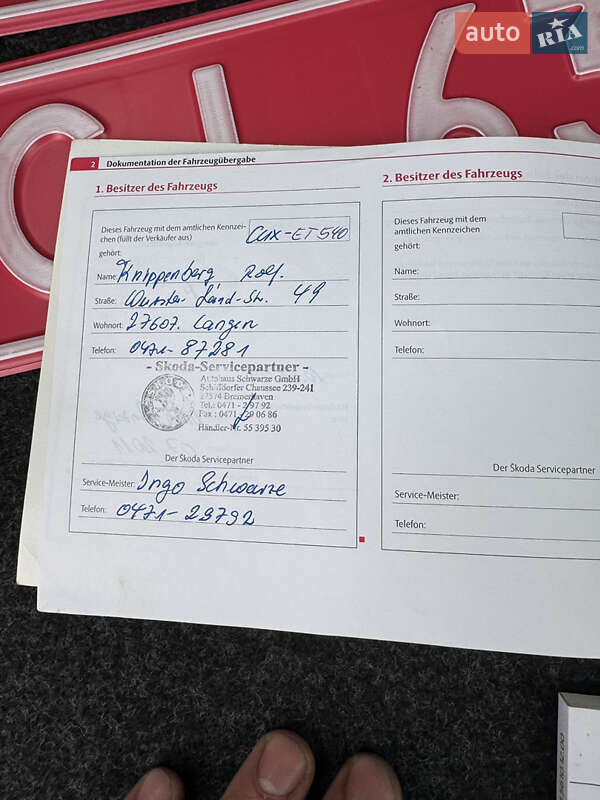 auto RIA .com
C L 63
2 Dokumentation der Fahrzeugübergabe
1. Besitzer des Fahrzeugs
Dieses Fahrzeug mit dem amtlichen Kennzei-
chen (füllt der Verkäufer aus) CUX-ET540
gehört:
Name: Knippenberg Rolf.
Straße: Wurster Land-Str. 49
Wohnort: 27607. Langen
Telefon: 0471-87281
- Skoda-Servicepartner -
Autohaus Schwarze GmbH
Schiffdorfer Chaussee 239-241
27574 Bremerhaven
Tel.: 0471 - 2 97 92
Fax : 0471 - 20 06 86
Händler-Nr. 55 395 30
Der Škoda Servicepartner
Service-Meister: Ingo Schwarze
Telefon: 0471-29792
2. Besitzer des Fahrzeugs
Dieses Fahrzeug mit dem
amtlichen Kennzeichen
gehört:
Name:
Straße:
Wohnort:
Telefon:
Der Škoda Servicepartner
Service-Meister:
Telefon: